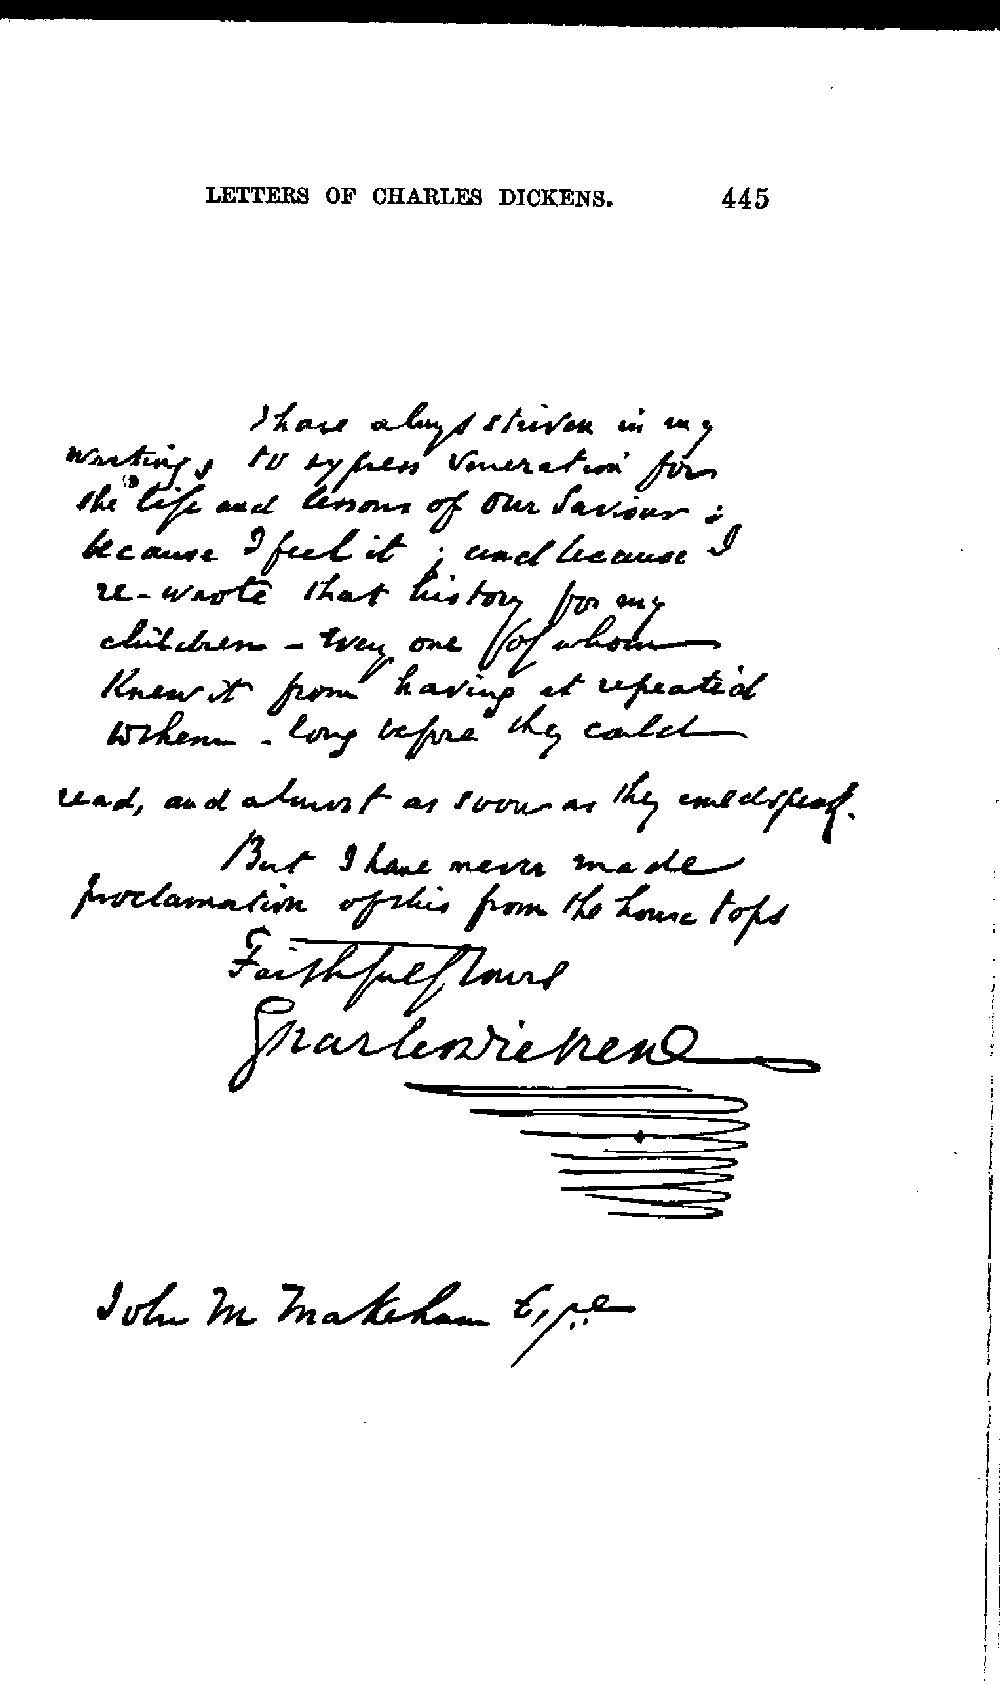 LETTERS OF CHARLES DICKENS. 445
I have always striven in my
writings to express veneration for
the life and lessons of Our Saviour ;
because I feel it ; and because I
re-wrote that history for my
children – Every one of whom
Knew it from having it repeated
to them – long before they could
read, and almost as soon as they could speak.
But I have never made
proclamation of this from the house tops
Faithfully Yours
Charles Dickens
John M Makeham Esqre